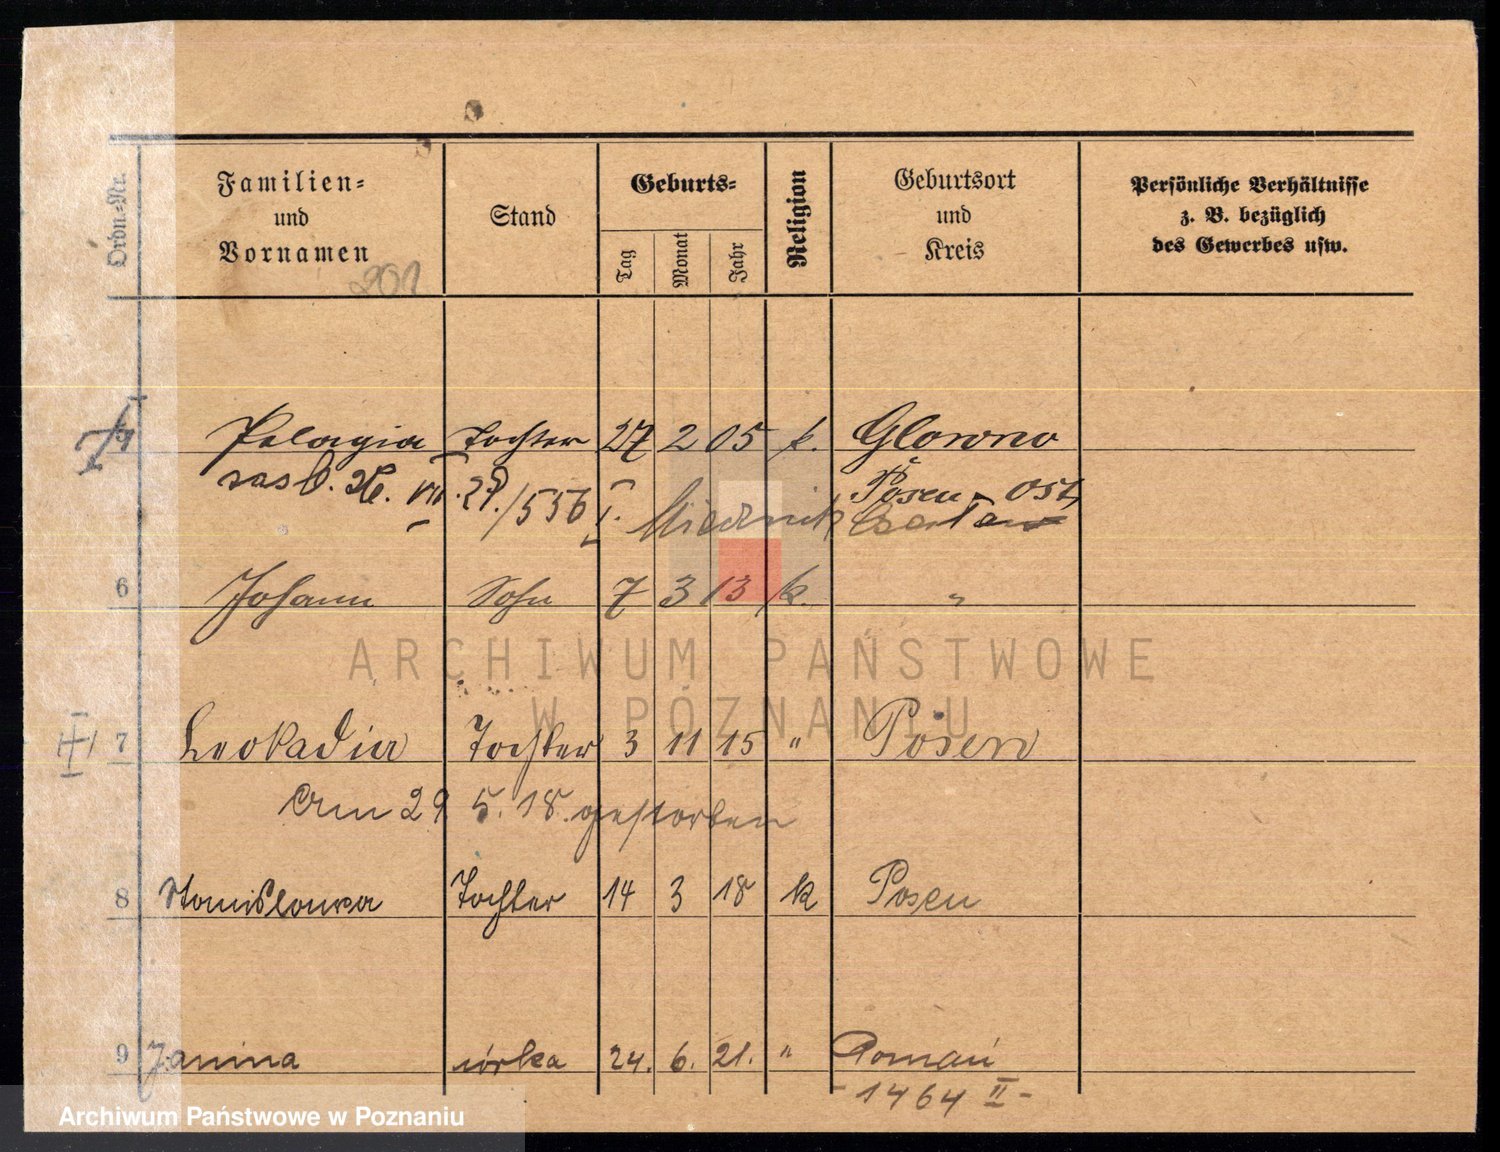 Ordn.-Nr.
Familien-
und
Vornamen
Stand
Geburts-
Tag
Monat
Jahr
Religion
Geburtsort
und
Kreis
Persönliche Verhältnisse
z. B. bezüglich
des Gewerbes usw.
201
Pelagia Tochter 27 2 05 k. Glowno
Posen-Ost
VIII. 29./536 I. Miedznik
6 Johann Sohn 7 3 13 k. "
7 Leokadia Tochter 3 11 15 " Posen
Am 29 5. 18. gestorben
8 Stanislawa Tochter 14 3 18 k Posen
9 Janina córka 24. 6. 21. " Poznań
- 1464 II -
ARCHIWUM PAŃSTWOWE
W POZNANIU
Archiwum Państwowe w Poznaniu